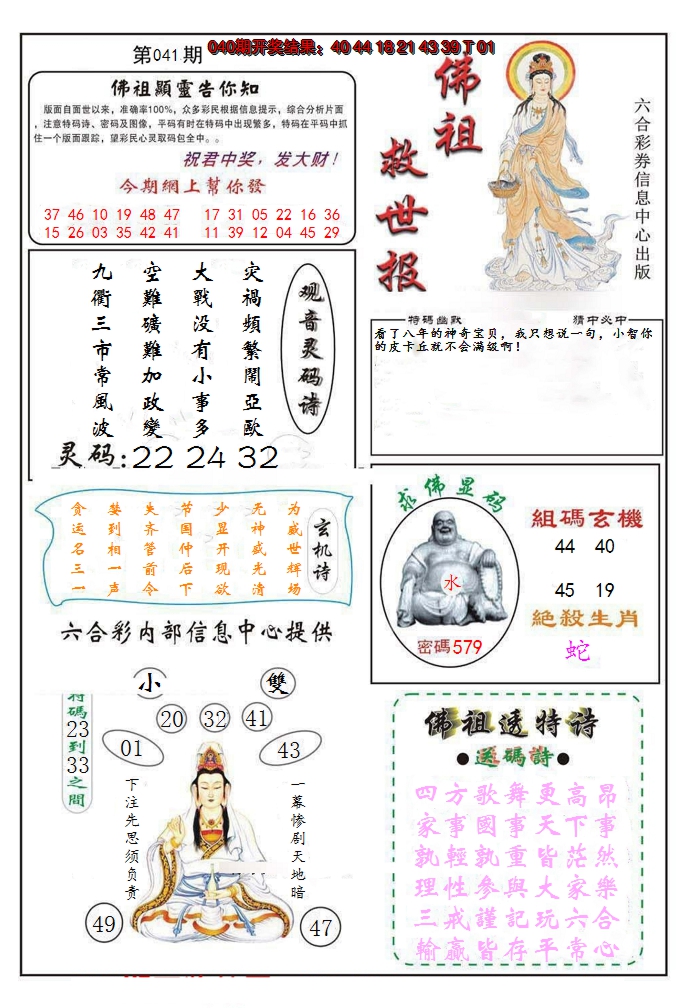 第041期
040期开奖结果：40 44 18 21 43 39 T 01
佛祖顯靈告你知
版面自面世以来，准确率100%，众多彩民根据信息提示，综合分析片面
，注意特码诗、密码及图像，平码有时在特码中出现繁多，特码在平码中抓
住一个版面跟踪，望彩民心灵取码包全中。。
祝君中奖，发大财！
今期網上幫你發
37 46 10 19 48 47 17 31 05 22 16 36
15 26 03 35 42 41 11 39 12 04 45 29
佛祖
救世报
六合彩券信息中心出版
观音灵码诗
灾禍頻繁鬧亞歐
大戰没有小事多
空難礦難加政變
九衢三市常風波
灵码:22 24 32
特碼幽默
猜中必中
看了八年的神奇宝贝，我只想说一句，小智你
的皮卡丘就不会满级啊！
玄机诗
为威世辉场
无神盛光清
少显开现欲
节国仲后下
失齐管前令
婪到相一声
贪运名三一
六合彩内部信息中心提供
求佛显码
水
密碼579
組碼玄機
44 40
45 19
絶殺生肖
蛇
小
雙
特碼23到33之間
20 32 41
01
43
一幕惨剧天地暗
下注先思须负责
49
47
佛祖透特诗
●送碼詩●
四方歌舞更高昂
家事國事天下事
孰輕孰重皆茫然
理性參與大家樂
三戒謹記玩六合
輸贏皆存平常心